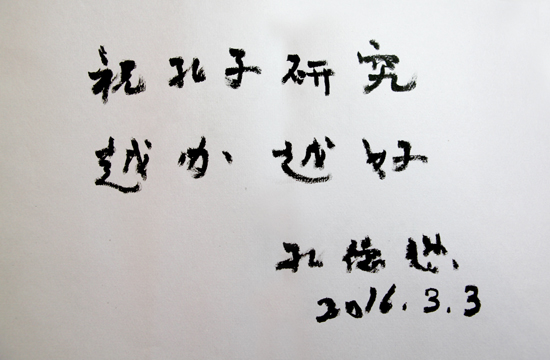 祝孔子研究
越办越好
孔德懋
2016.3.3